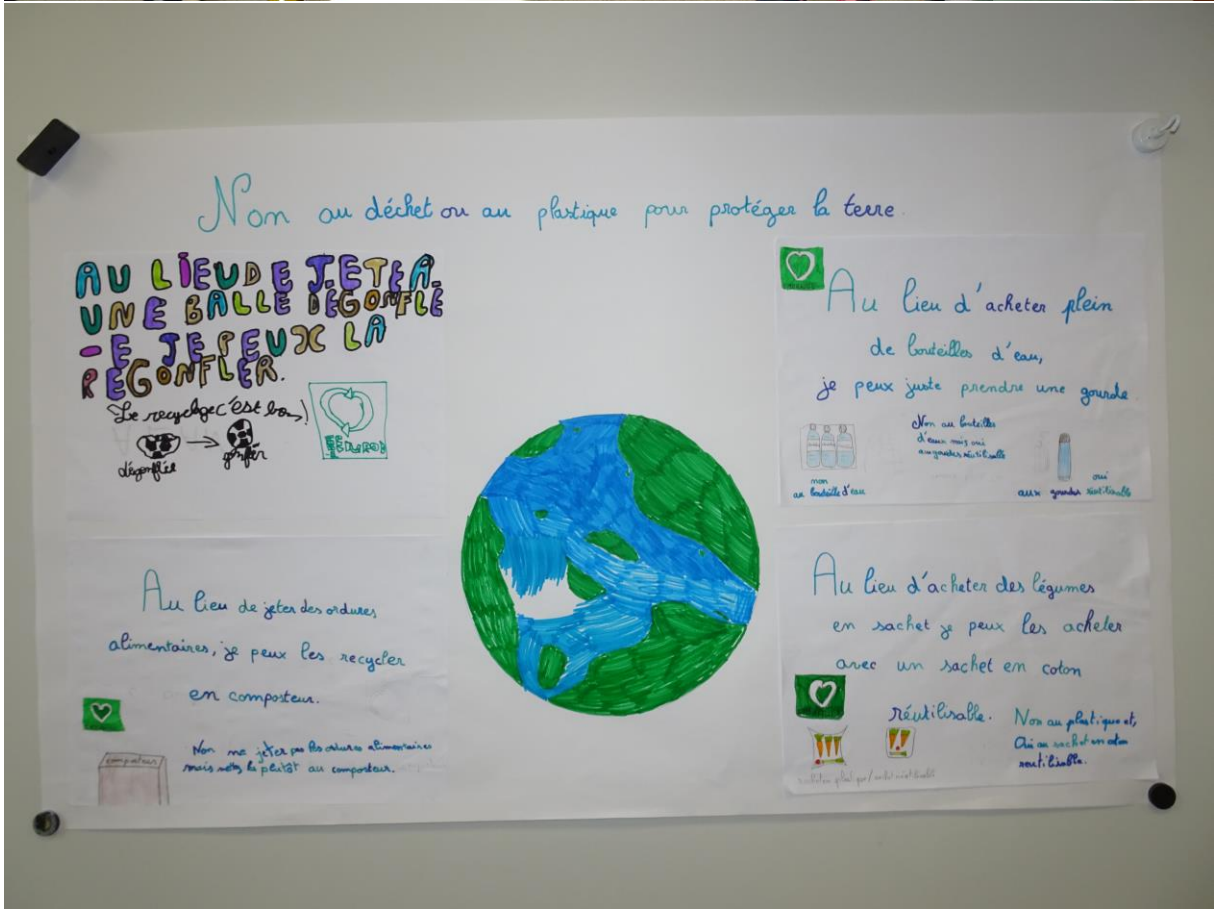 Non au déchet ou au plastique pour protéger la terre.
AU LIEU DE JETER
UNE BALLE DÉGONFLÉ
-E JE PEUX LA
REGONFLER.
Le recyclage c'est bon
dégonflée
gonfler
Au lieu de jeter des ordures
alimentaires, je peux les recycler
en composteur.
composteur
Non ne jeter pas les ordures alimentaires
mais le plutôt au composteur.
Au lieu d'acheter plein
de bouteilles d'eau,
je peux juste prendre une gourde.
Non au bouteilles
d'eaux mais oui
au gourdes réutilisable
non
au bouteille d'eau
oui
aux gourdes réutilisable
Au lieu d'acheter des légumes
en sachet je peux les acheter
avec un sachet en coton
réutilisable.
Non au plastique et,
Oui au sachet en coton
reutilisable.